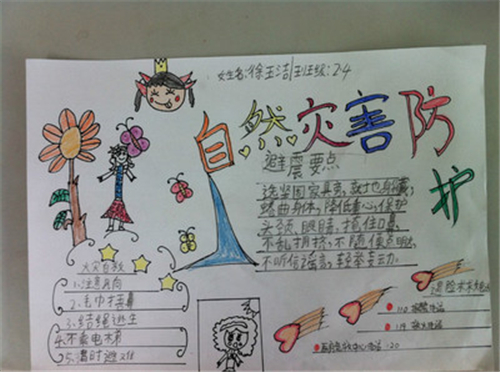 姓名:徐玉洁 班级:2.4
自然灾害防护
避震要点
选坚固家具旁,就地身藏,
蜷曲身体,降低重心,保护
头颈、眼睛,捂住口鼻,
不乱拥挤,不随便点明火,
不听信谣言,轻举妄动.
火灾自救
1.注意风向
2.毛巾捂鼻
3.结绳逃生
4.不乘电梯
5.暂时避难
遇险
110
119
120